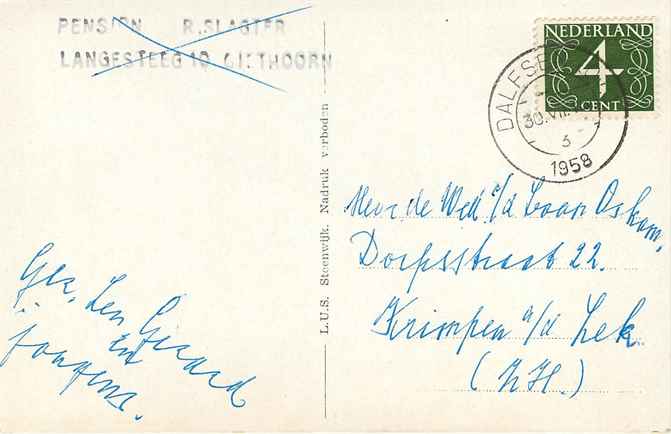 PENSION R.SLAGTER
LANGESTEEG 10 GIETHOORN
NEDERLAND
4
CENT
DALFSEN
30.VII.
3
1958
L.U.S. Steenwijk. Nadruk verboden
Mevr de Wed v/d Laan Oskam,
Dorpsstraat 22.
Krimpen a/d Lek
(ZH.)
Gez. Len Gerard
en
jongens.